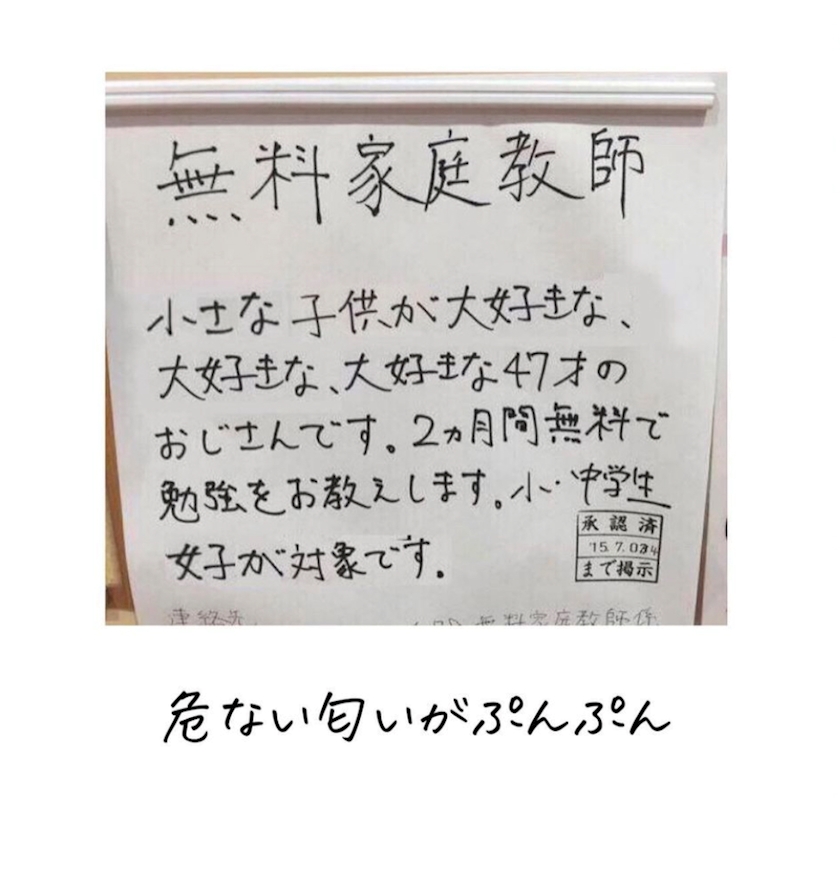 無料家庭教師
小さな子供が大好きな、
大好きな、大好きな47才の
おじさんです。2ヵ月間無料で
勉強をお教えします。小・中学生
女子が対象です。
承認済
まで掲示
無料家庭教師係
危ない匂いがぷんぷん